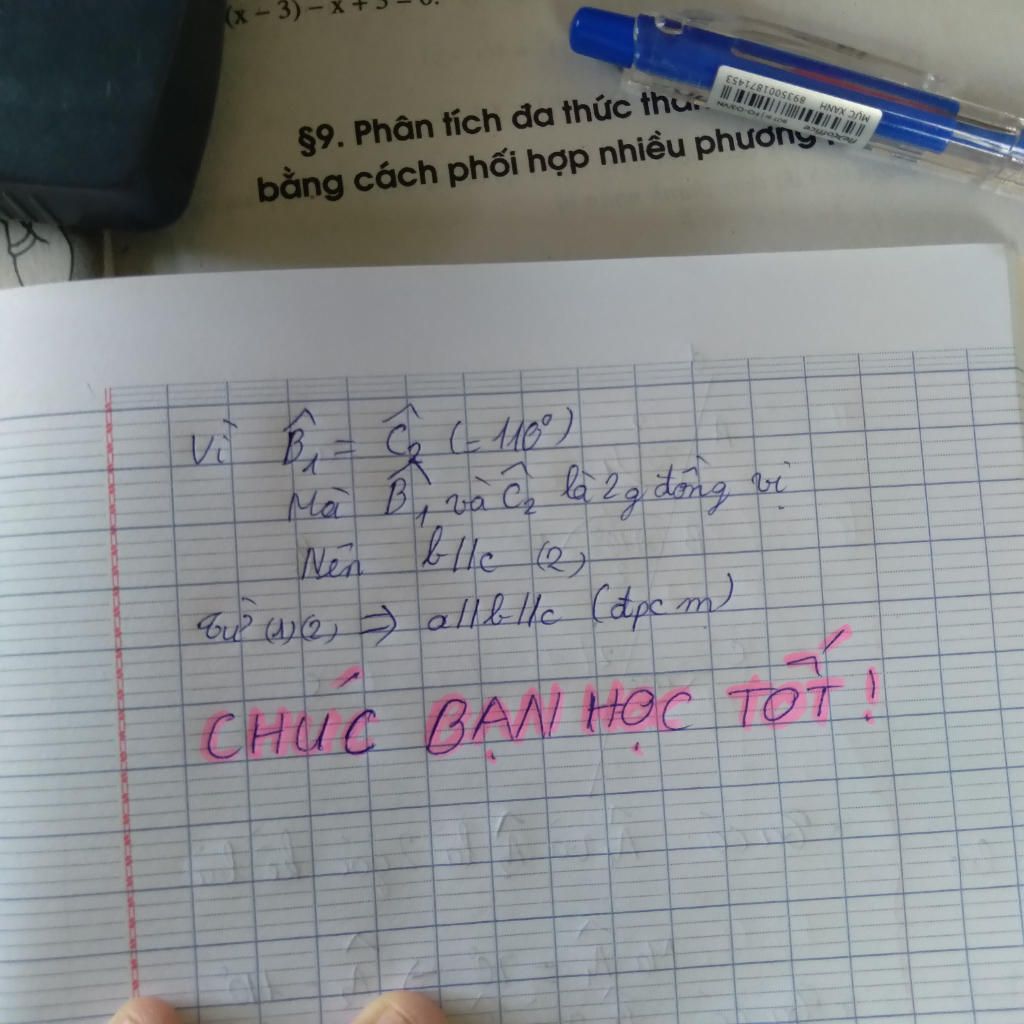 (x − 3) − x + 3 = 0.
§9. Phân tích đa thức
bằng cách phối hợp nhiều phương
flexoffice
MỰC XANH
8935001871453
Vì B̂₁ = Ĉ₂ (= 110°)
Mà B̂₁ và Ĉ₂ là 2g đồng vị
Nên b//c (2)
Từ (1)(2) ⇒ a//b//c (đpcm)
CHÚC BẠN HỌC TỐT!